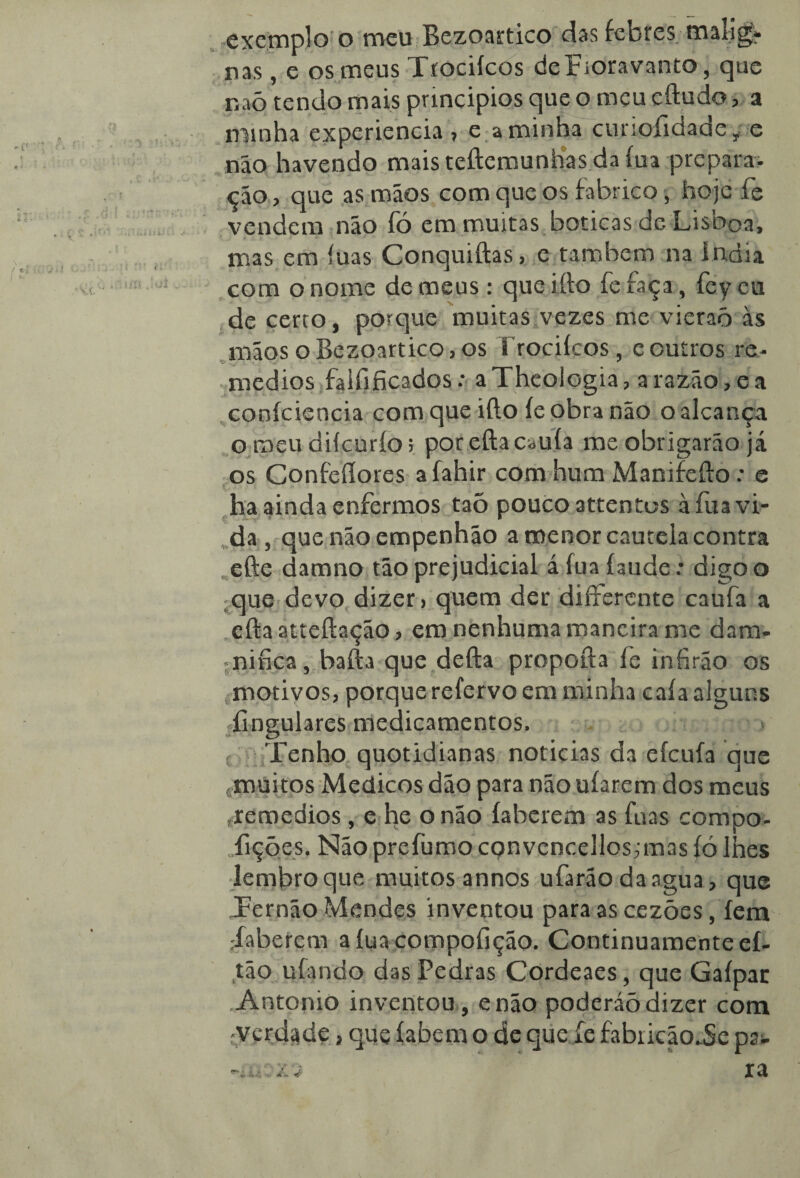 exemplo o meu Bezoartico das febres malig-
nas, e os meus Trociſcos de Fioravanto, que
naõ tendo mais principios que o meu eſtudo, a
minha experiencia, e a minha curioſidade, e
não havendo mais teſtemunhas da ſua prepara-
ção, que as mãos com que os fabrico, hoje ſe
vendem não ſó em muitas boticas de Lisboa,
mas em ſuas Conquiſtas, e tambem na India
com o nome de meus: que iſto ſe faça, ſey eu
de certo, porque muitas vezes me vieraõ às
mãos o Bezoartico, os Trociſcos, e outros re-
medios falſificados: a Theologia, a razão, e a
conſciencia com que iſto ſe obra não o alcança
o meu diſcurſo; por eſta cauſa me obrigarão já
os Confeſſores a ſahir com hum Manifeſto: e
ha ainda enfermos taõ pouco attentos à ſua vi-
da, que não empenhão a menor cautela contra
eſte damno tão prejudicial á ſua ſaude: digo o
que devo dizer, quem der differente cauſa a
eſta atteſtação, em nenhuma maneira me dam-
nifica, baſta que deſta propoſta ſe infirão os
motivos, porque reſervo em minha caſa alguns
ſingulares medicamentos.
Tenho quotidianas noticias da eſcuſa que
muitos Medicos dão para não uſarem dos meus
remedios, e he o não ſaberem as ſuas compo-
ſições. Não preſumo convencellos; mas ſó lhes
lembro que muitos annos uſarão da agua, que
Fernão Mendes inventou para as cezões, ſem
ſaberem a ſua compoſição. Continuamente eſ-
tão uſando das Pedras Cordeaes, que Gaſpar
Antonio inventou, e não poderáõ dizer com
verdade, que ſabem o de que ſe fabricão. Se pa-
ra